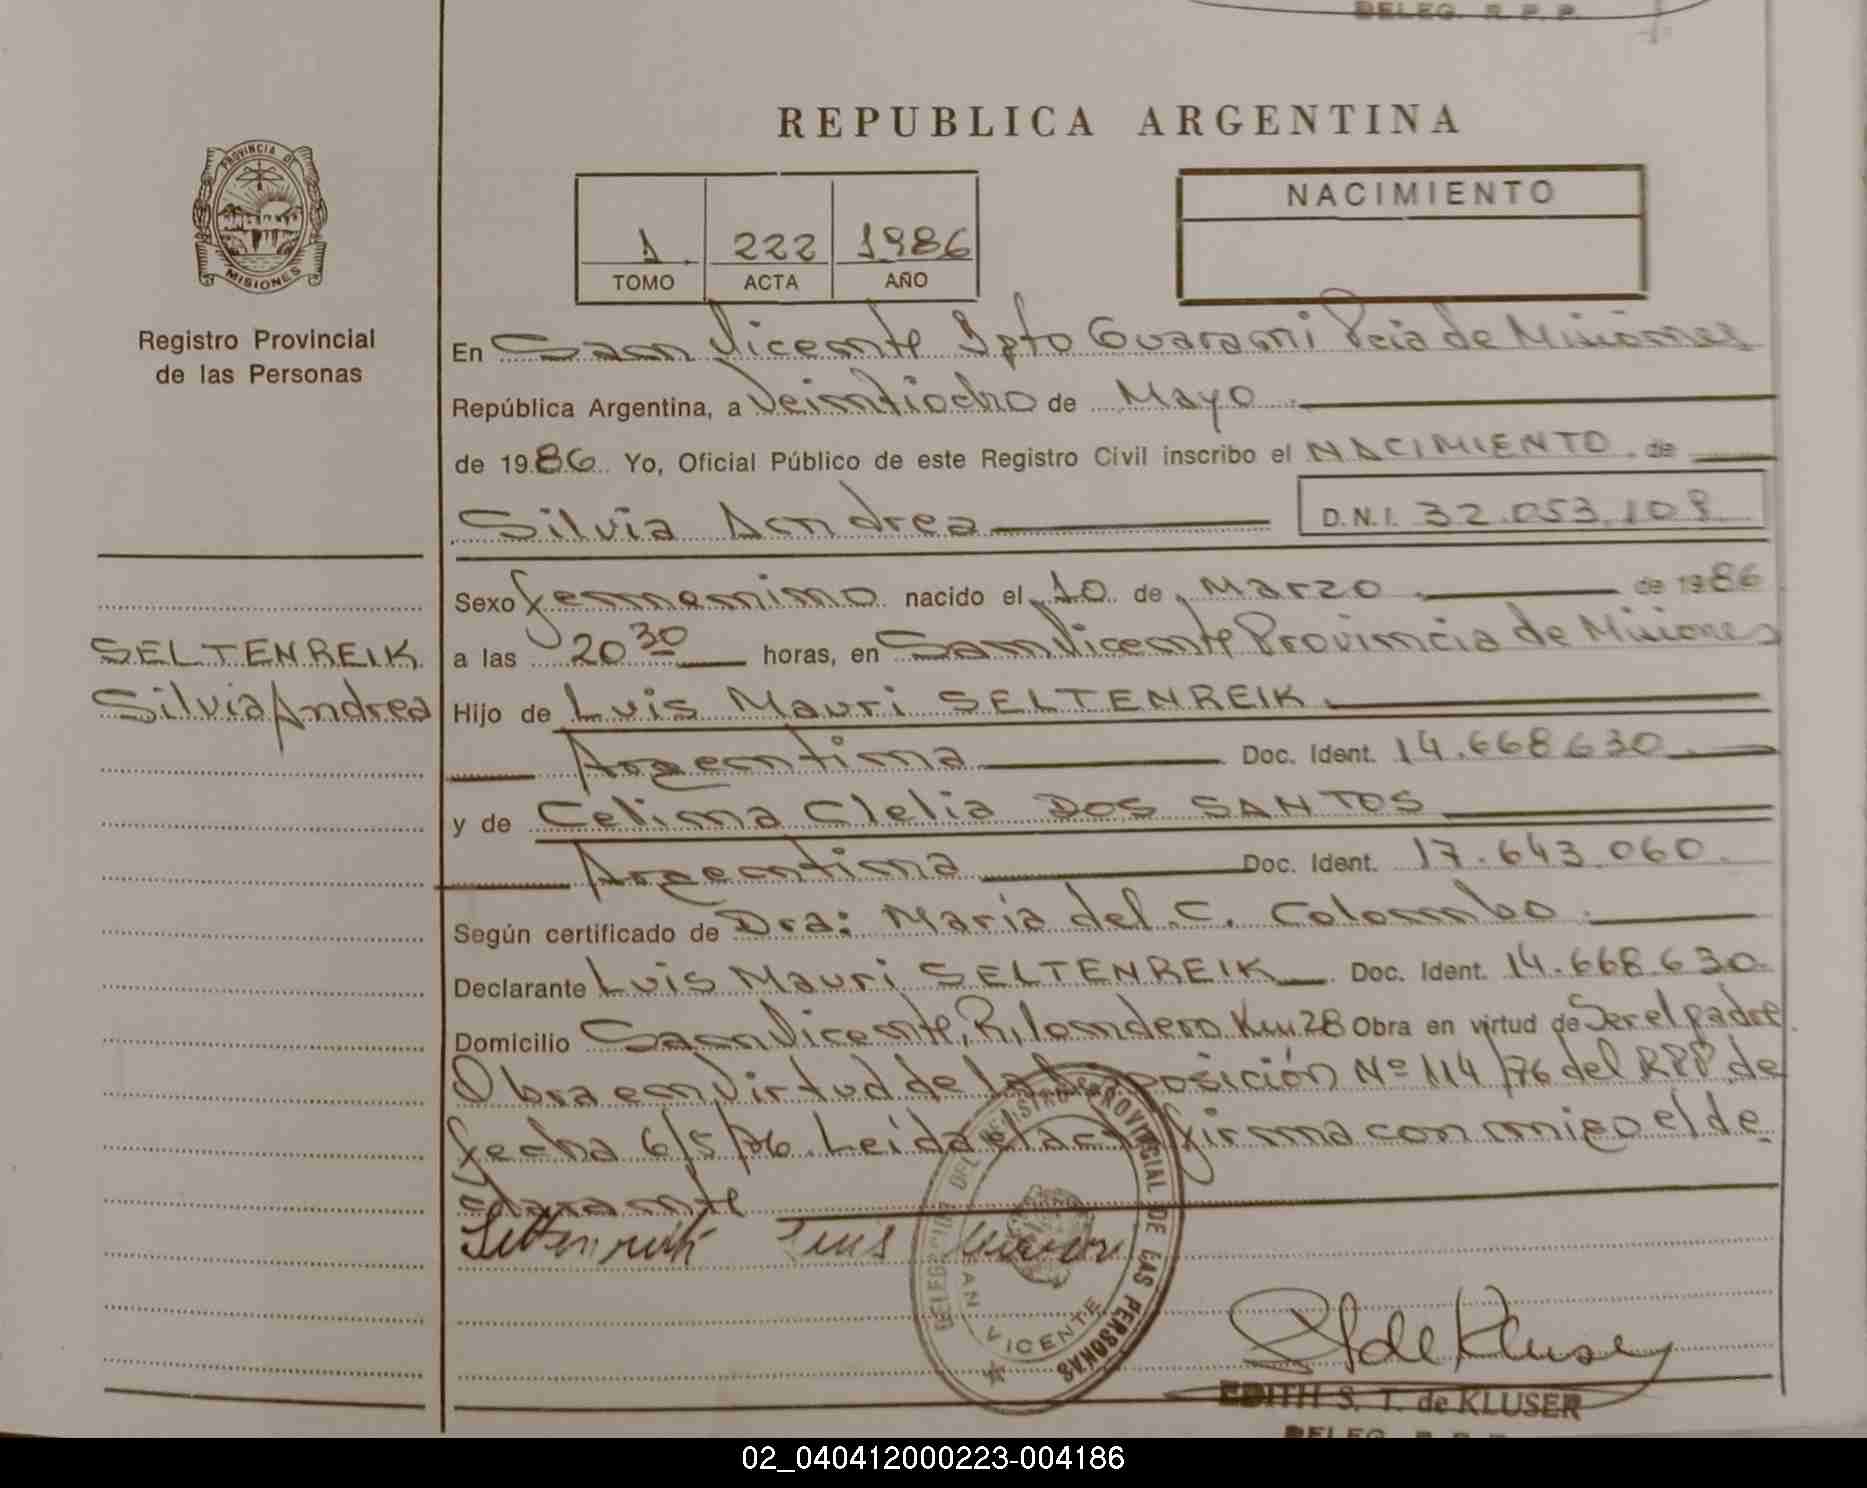 DELEG. R. P. P.
REPUBLICA ARGENTINA
PROVINCIA DE
MISIONES
Registro Provincial
de las Personas
1 222 1986
TOMO ACTA AÑO
NACIMIENTO
En San Vicente Dpto Guarani Pcia de Misiones
República Argentina, a Veintiocho de Mayo
de 1986 Yo, Oficial Público de este Registro Civil inscribo el NACIMIENTO de
Silvia Andrea D.N.I. 32.053.108
Sexo femenino nacido el 10 de Marzo de 1986
SELTENREIK
Silvia Andrea
a las 20 30 horas, en San Vicente Provincia de Misiones
Hijo de Luis Mauri SELTENREIK
Argentina Doc. Ident. 14.668.630
y de Celima Clelia DOS SANTOS
Argentina Doc. Ident. 17.643.060
Según certificado de Dra: Maria del C. Colombo
Declarante Luis Mauri SELTENREIK Doc. Ident. 14.668.630
Domicilio San Vicente, R, Londero Km 28 Obra en virtud de Ser el padre
Obra en Virtud de la Disposición Nº 114/76 del RPP. de
fecha 6/5/76. Leida el acta firma conmigo el de
clarante
Seltenreik Luis Mauri
DELEGACION DEL REGISTRO PROVINCIAL DE LAS PERSONAS
SAN VICENTE
de Kluser
EDITH S. T. de KLUSER
DELEG. R. P. P.
02_040412000223-004186